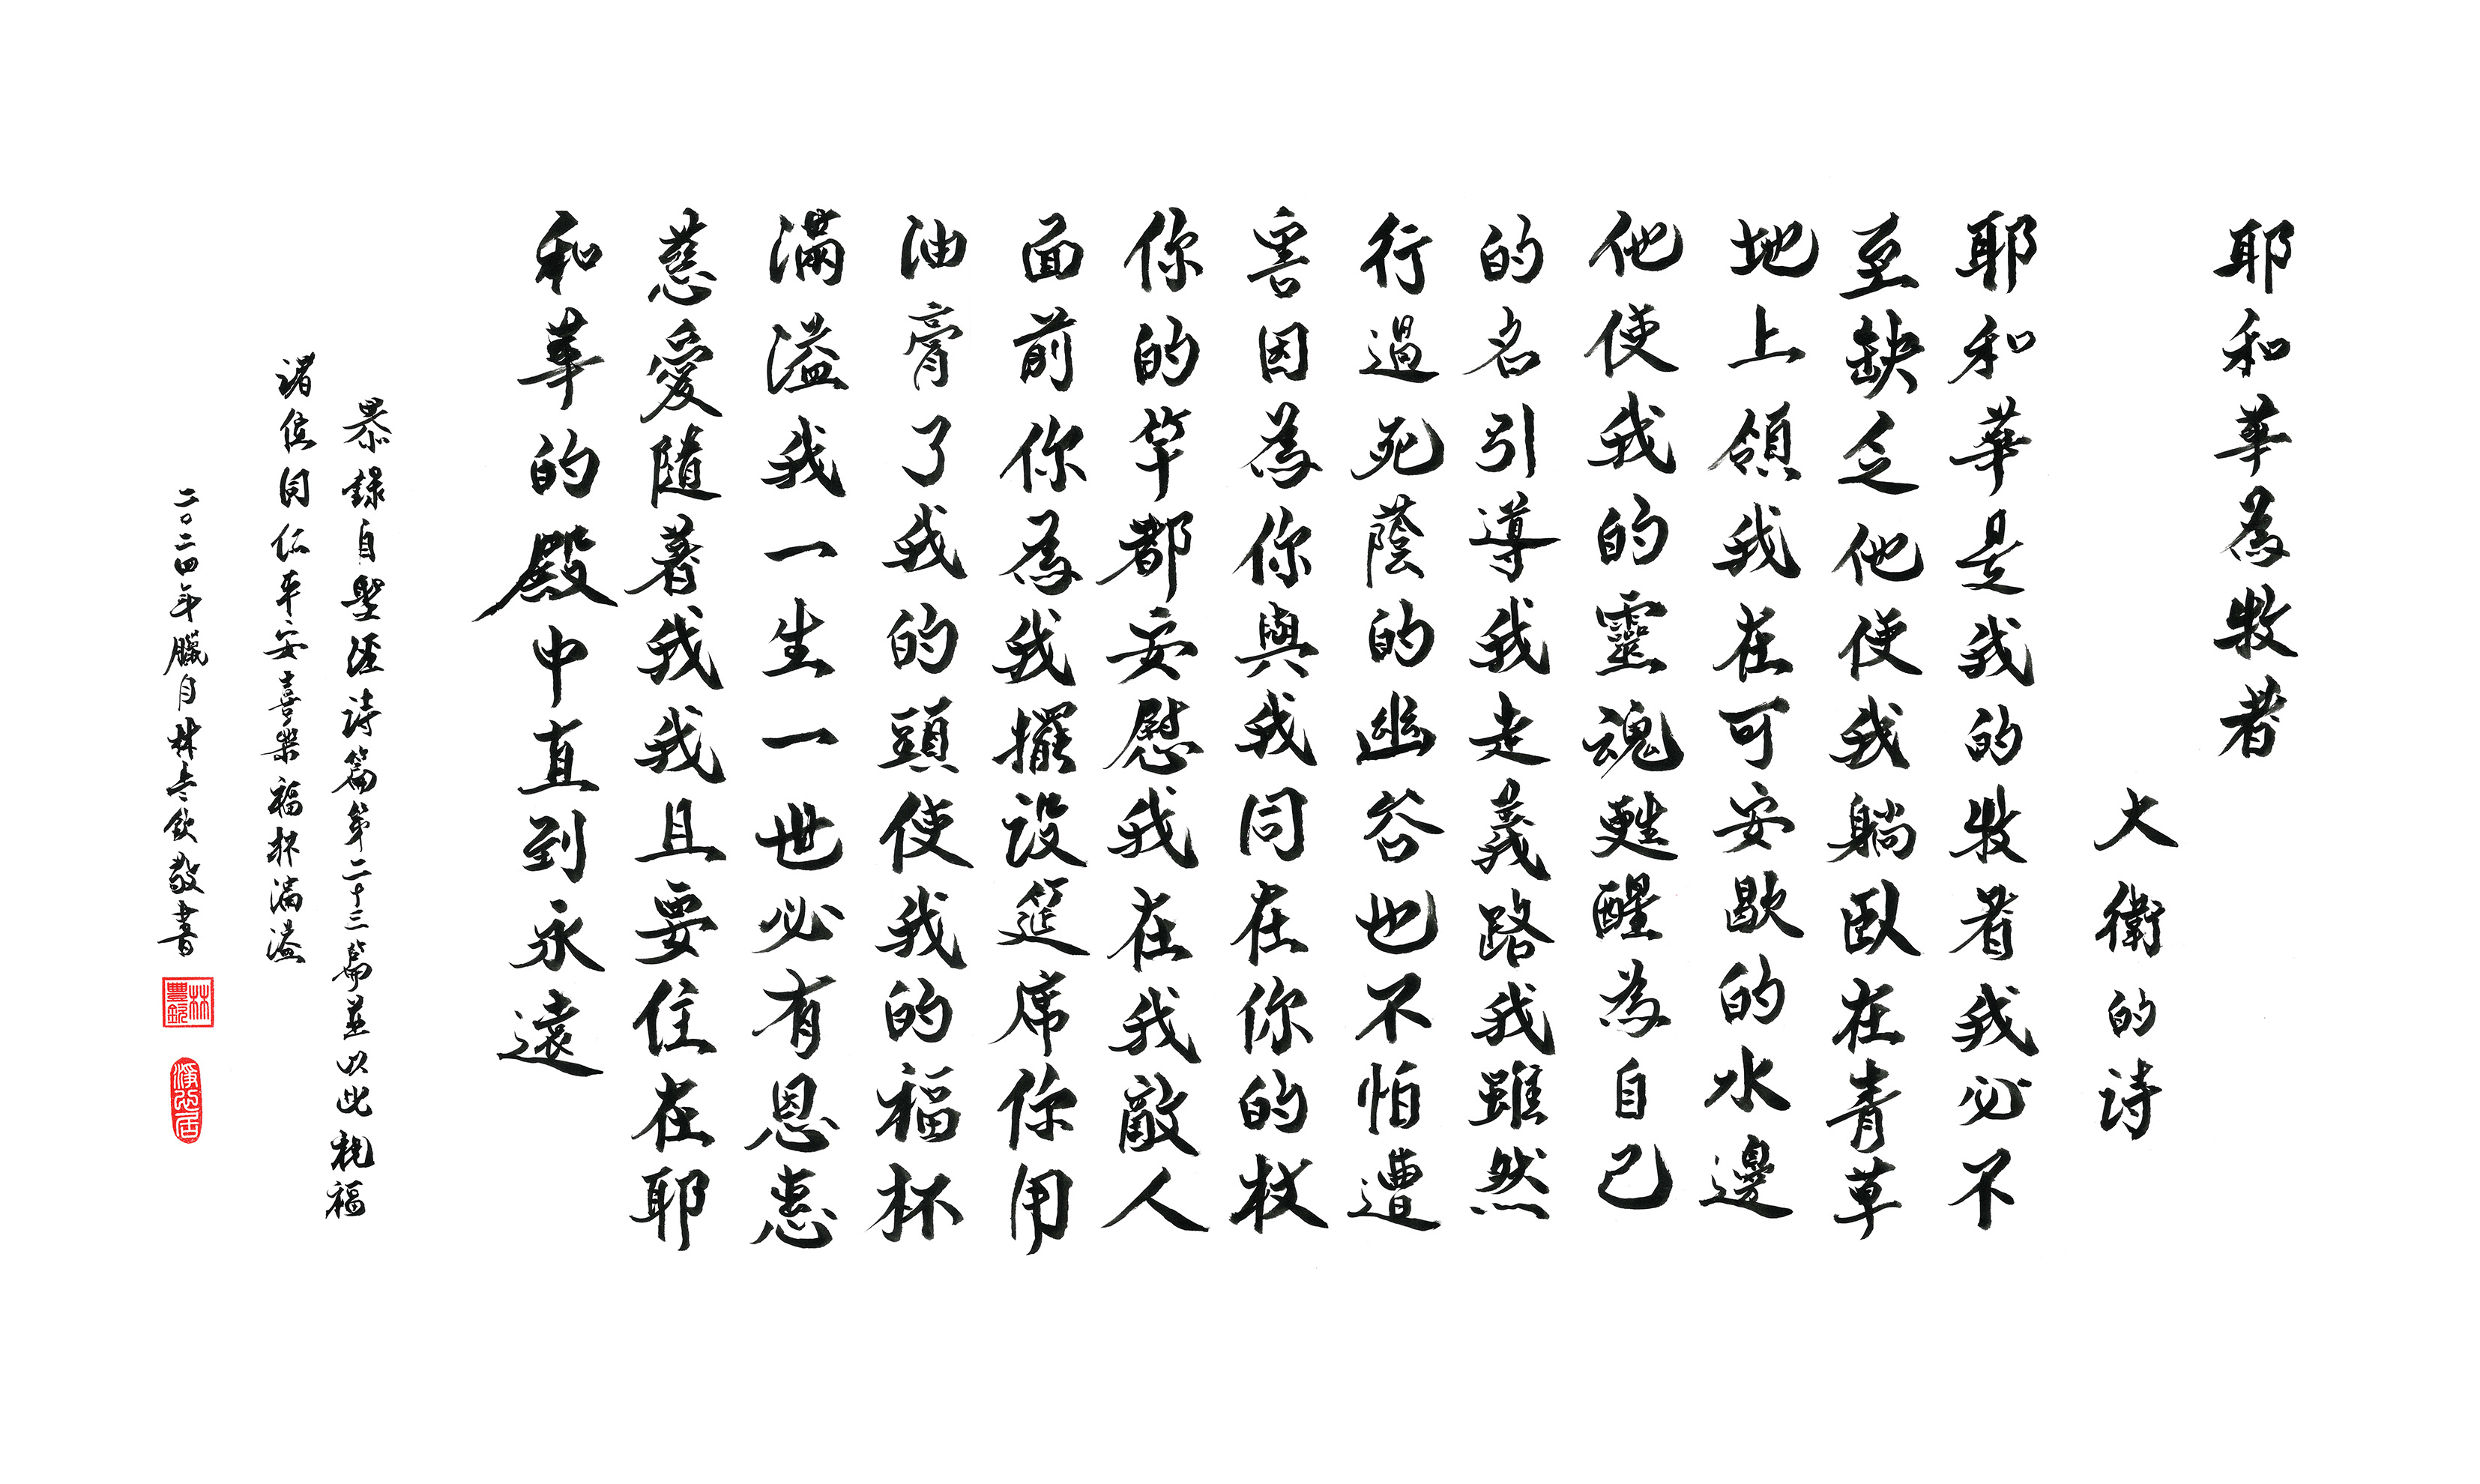 耶和華為牧者
大衛的詩
耶和華是我的牧者我必不
至缺乏他使我躺臥在青草
地上領我在可安歇的水邊
他使我的靈魂甦醒為自己
的名引導我走義路我雖然
行過死蔭的幽谷也不怕遭
害因為你與我同在你的杖
你的竿都安慰我在我敵人
面前你為我擺設筵席你用
油膏了我的頭使我的福杯
滿溢我一生一世必有恩惠
慈愛隨著我我且要住在耶
和華的殿中直到永遠
恭錄自聖經诗篇第二十三篇並以此祝福
诸位同仁平安喜樂福杯滿溢
二〇二四年臘月林豐欽敬書
林豐欽
淨心居